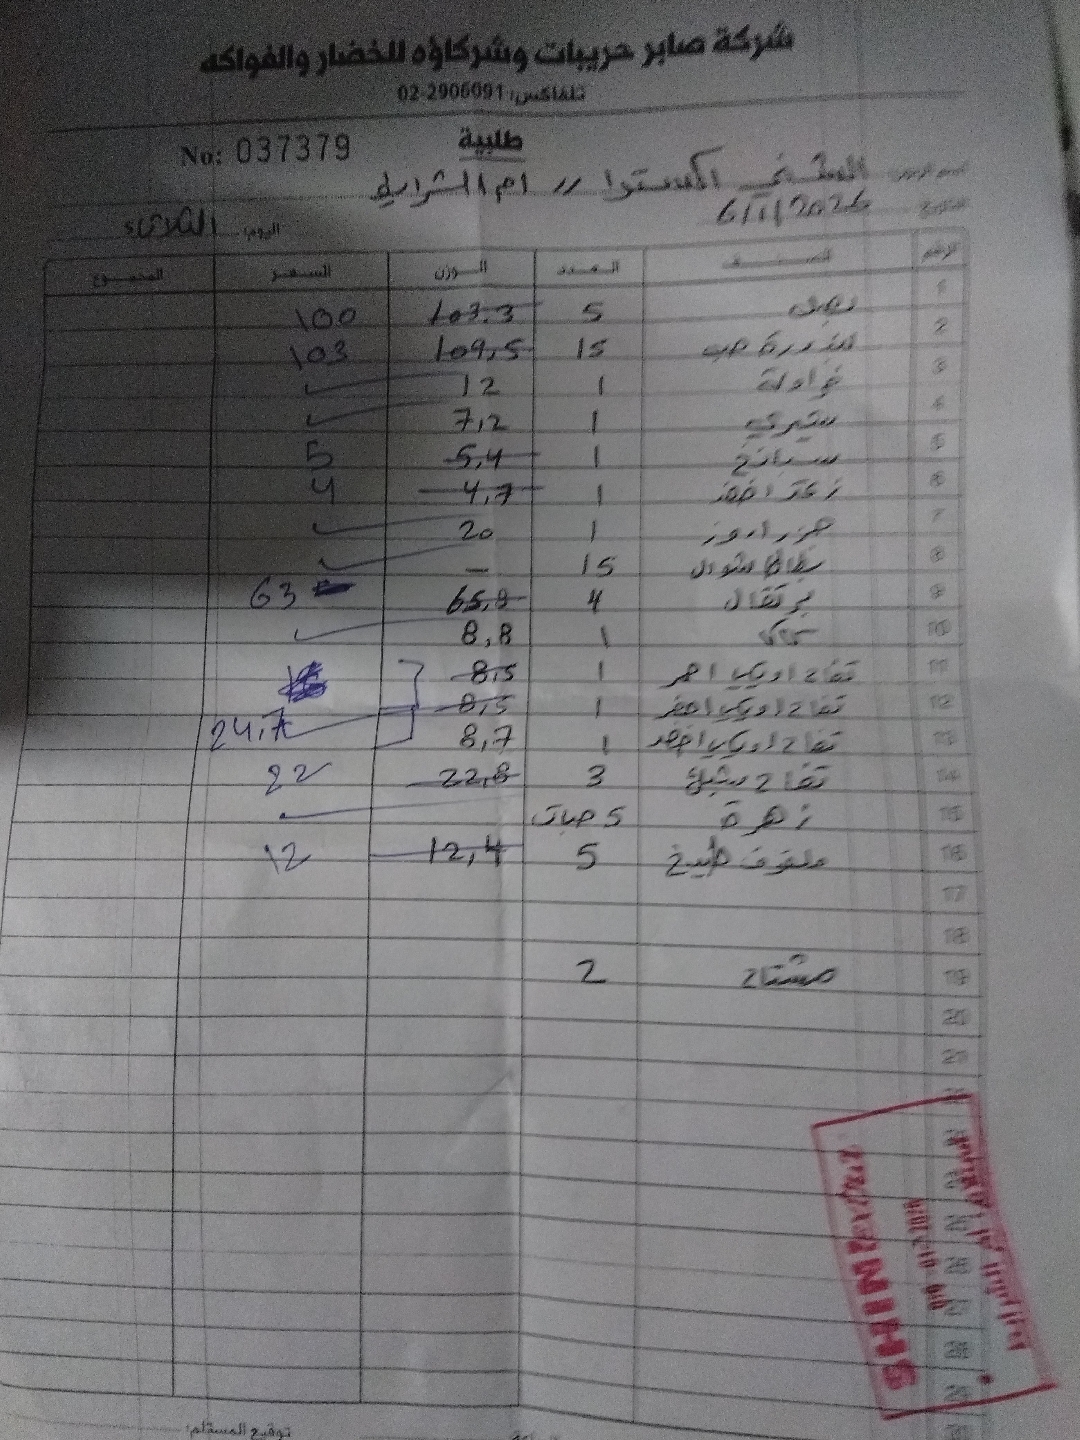 شركة صابر حريبات وشركاؤه للخضار والفواكه
تلفاكس: 02-2906091
طلبية
No: 037379
الشني اكسترا // ام الشرايط
التاريخ 6/1/2026
اليوم: الثلاثاء
الرقم الصنف العدد الوزن السعر المجموع
1 بصل 5 103.3 100
2 بندورة حب 15 109,5 103
3 فراولة 1 12 ✓
4 شيري 1 7,2 ✓
5 سبانخ 1 5,4 5
6 زعتر اخضر 1 4,7 4
7 جزر اروز 1 20 ✓
8 بطاطا شوال 15 - ✓
9 برتقال 4 65,8 63
10 كاكا 1 8,8 ✓
11 تفاح اوريكي احمر 1 8,5
12 تفاح اوريكي اخضر 1 8,5
13 تفاح اوريكي اخضر 1 8,7 24,7
14 تفاح 3 22,8 22
15 زهرة 5 حبات
16 ملفوف طبيخ 5 12,4 12
17
18
19 مشتاح 2
20
21
SHINIEXTRA
توقيع المستلم: